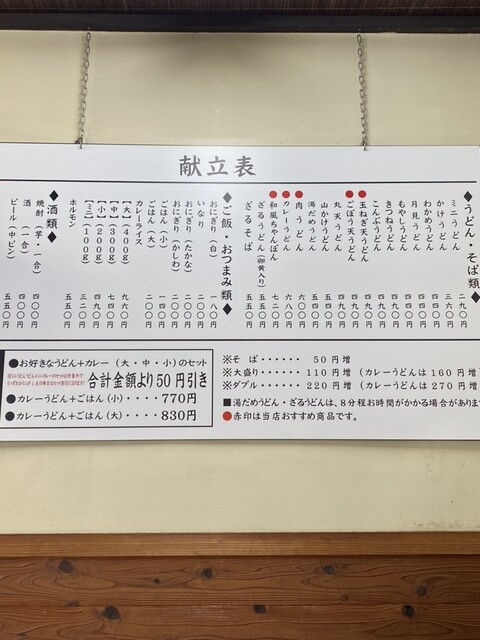 献立表
◆うどん・そば類◆
ミニうどん 二九〇円
かけうどん 三六〇円
わかめうどん
月見うどん
もやしうどん
きつねうどん
こんぶうどん
●玉ねぎ天うどん 四九〇円
●ごぼう天うどん 四九〇円
丸天うどん
山かけうどん
湯だめうどん
●肉うどん 六〇〇円
●カレーうどん 六八〇円
●和風ちゃんぽん 七四〇円
ざるうどん（卵黄入り） 五二〇円
ざるそば 五七〇円
◆ご飯・おつまみ類◆
おにぎり（白） 一八〇円
いなり 二〇〇円
おにぎり（たかな） 二〇〇円
おにぎり（かしわ） 二〇〇円
ごはん（小） 一四〇円
ごはん（大） 二〇〇円
カレーライス
【大】(400g) 九六〇円
【中】(300g) 七九〇円
【小】(200g)
【ミニ】(100g) 三二〇円
ホルモン 五五〇円
◆酒類◆
焼酎（芋・一合） 四〇〇円
酒（一合） 四〇〇円
ビール（中ビン） 五五〇円
●お好きなうどん+カレー（大・中・小）のセット
合計金額より50円引き
●カレーうどん+ごはん（小）・・・・770円
●カレーうどん+ごはん（大）・・・・830円
※そば・・・・・・50円増
※大盛り・・・・・・110円増（カレーうどんは160円増
※ダブル・・・・・・220円増（カレーうどんは270円増
■湯だめうどん・ざるうどんは、8分程お時間がかかる場合があります
●赤印は当店おすすめ商品です。